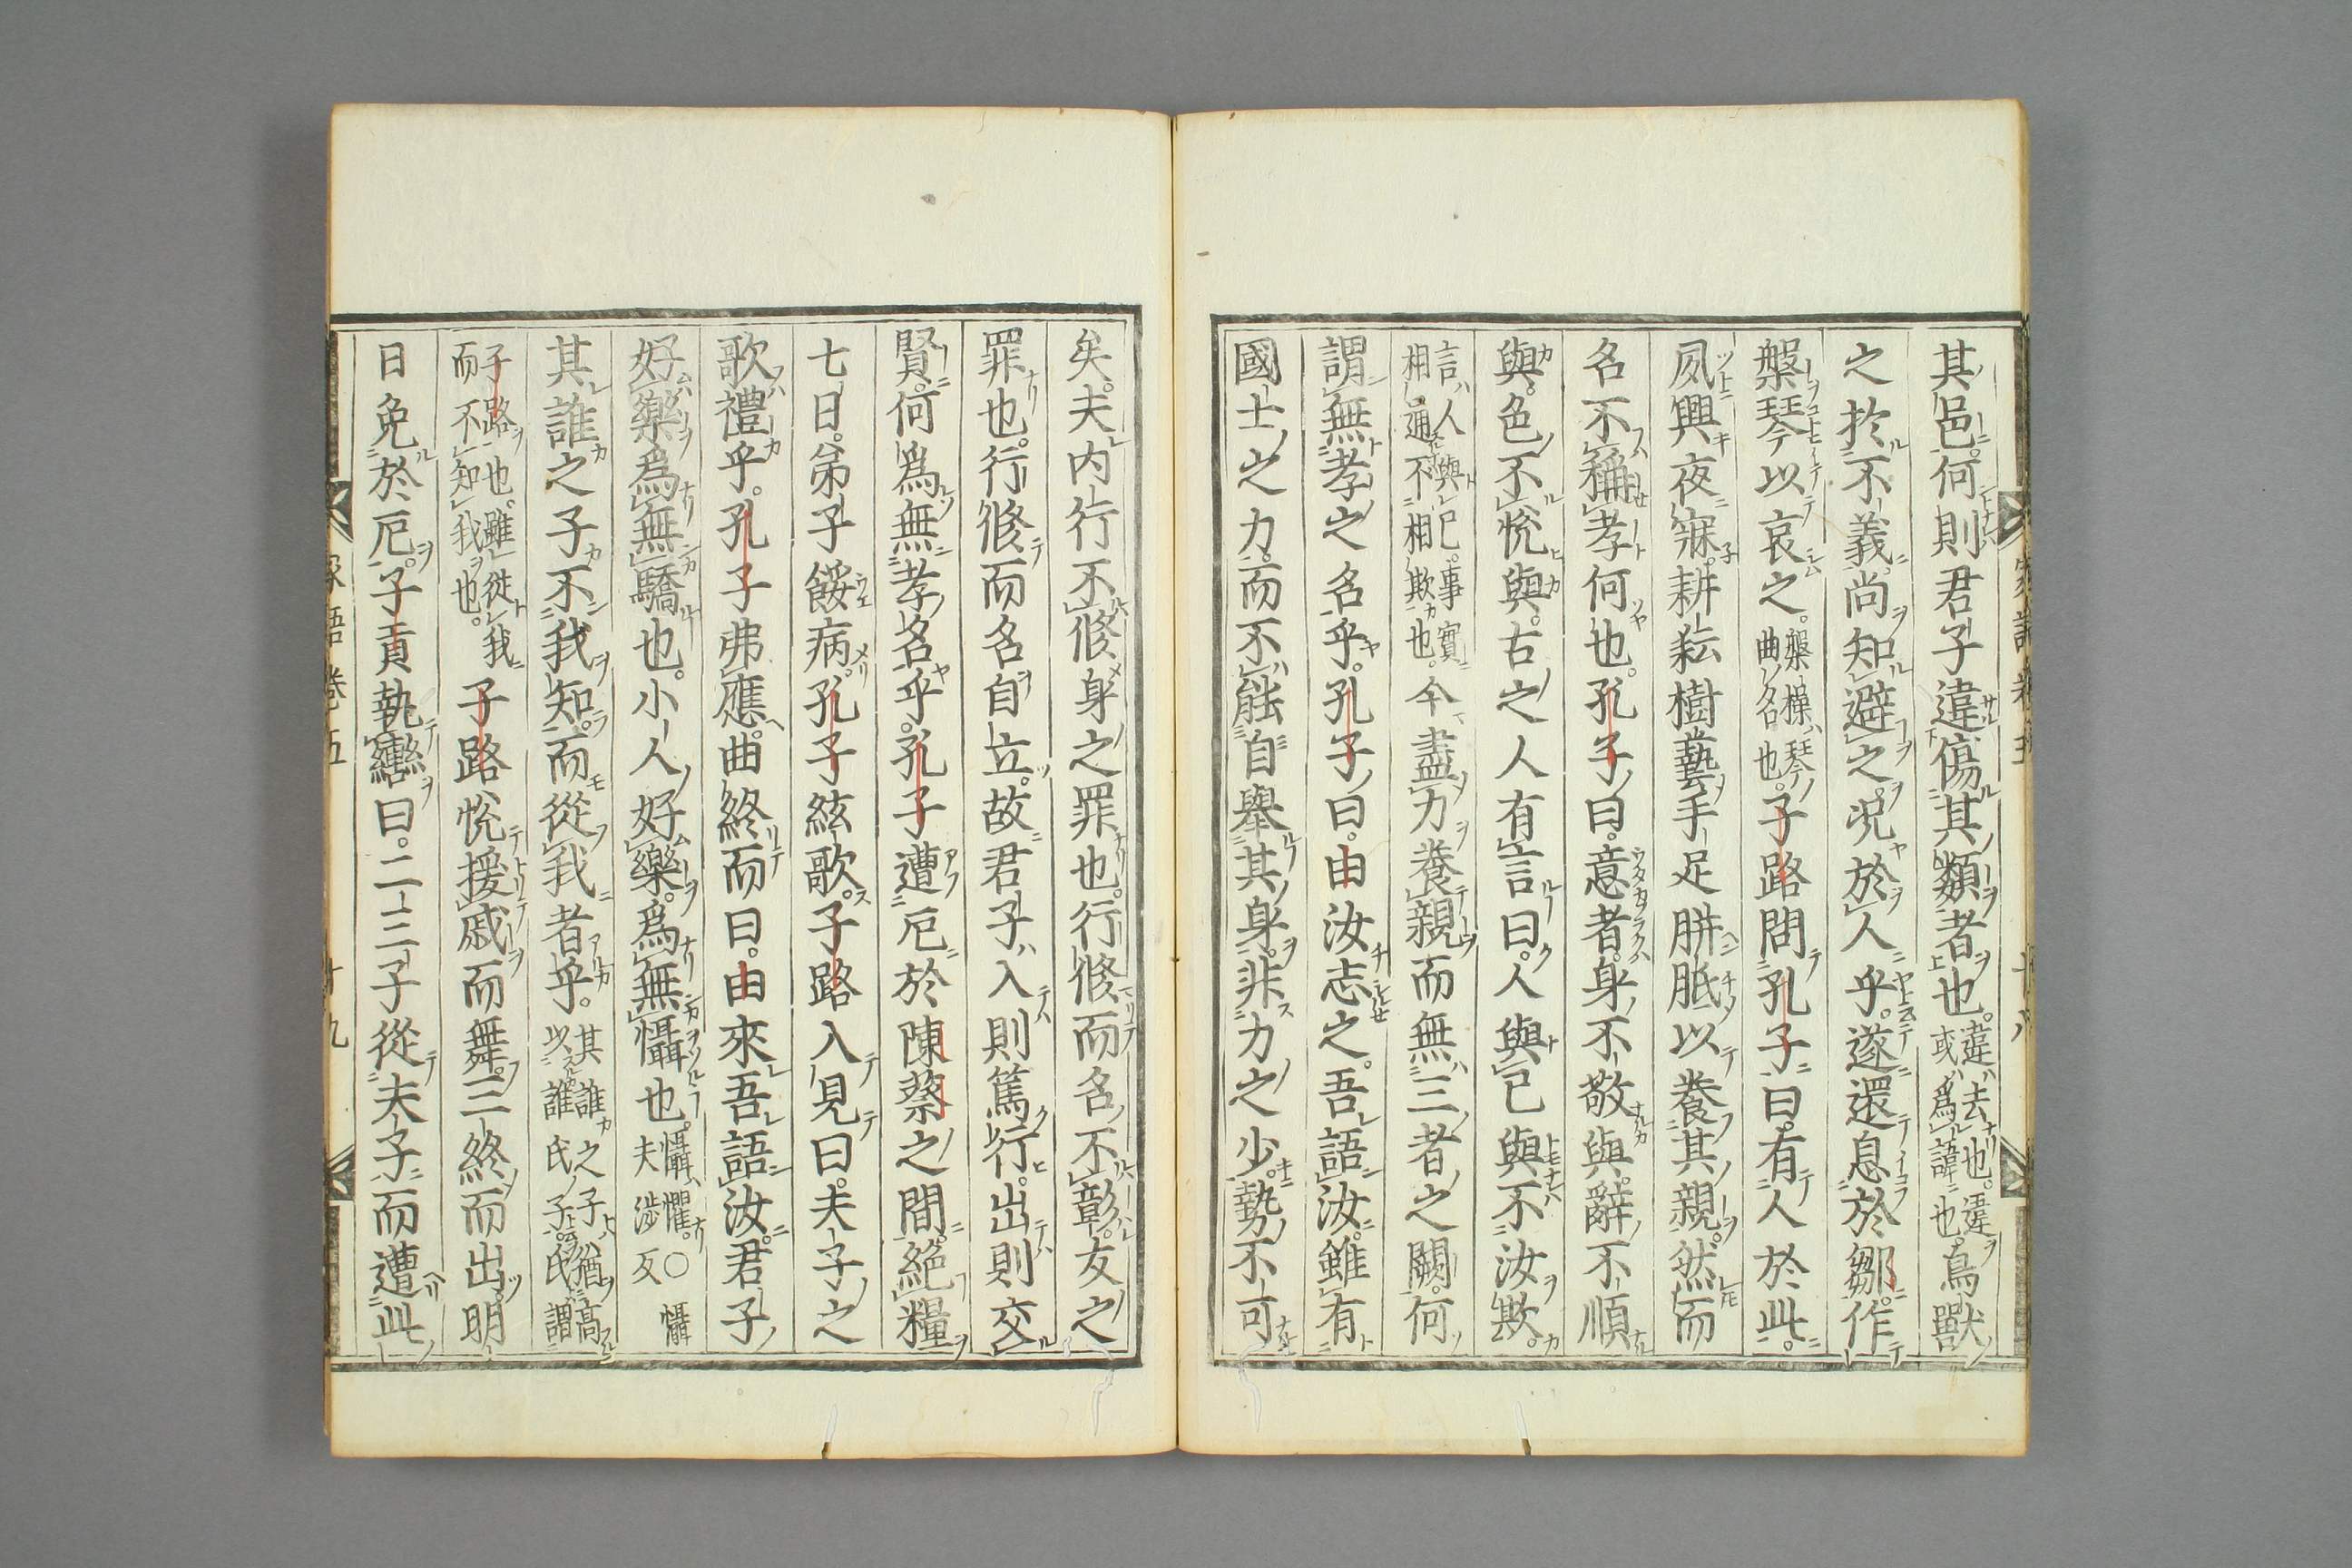 其邑。何則君子違傷其類者也。違去也。違或爲諱也。鳥獸
之於不義。尚知避之。况於人乎。遂還息於鄒。作
槃琴以哀之。槃操琴曲名也。子路問孔子曰。有人於此。
夙興夜寐。耕耘樹藝。手足胼胝。以養其親。然而
名不稱孝何也。孔子曰。意者身不敬與。辭不順
與。色不悅與。古之人有言曰。人與己與不汝欺。
言人與己。事實相通。不相欺也。今盡力養親而無三者之闕。何
謂無孝之名乎。孔子曰。由汝志之。吾語汝。雖有
國士之力。而不能自舉其身。非力之少。勢不可
矣。夫内行不修。身之罪也。行修而名不彰。友之
罪也。行修而名自立。故君子入則篤行。出則交
賢。何爲無孝名乎。孔子遭厄於陳蔡之間。絕糧
七日。弟子餒病。孔子絃歌。子路入見曰。夫子之
歌禮乎。孔子弗應。曲終而曰。由來吾語汝。君子
好樂爲無驕也。小人好樂。爲無懾也。懾懼。○懾夫涉反
其誰之子不我知。而從我者乎。其誰之子猶以誰氏子。氏謂高
子路也。雖從我而不知我也。子路悅。援戚而舞。三終而出。明
日免於厄。子貢執轡曰。二三子從夫子而遭此
家語卷五
十八
家語卷五
十九